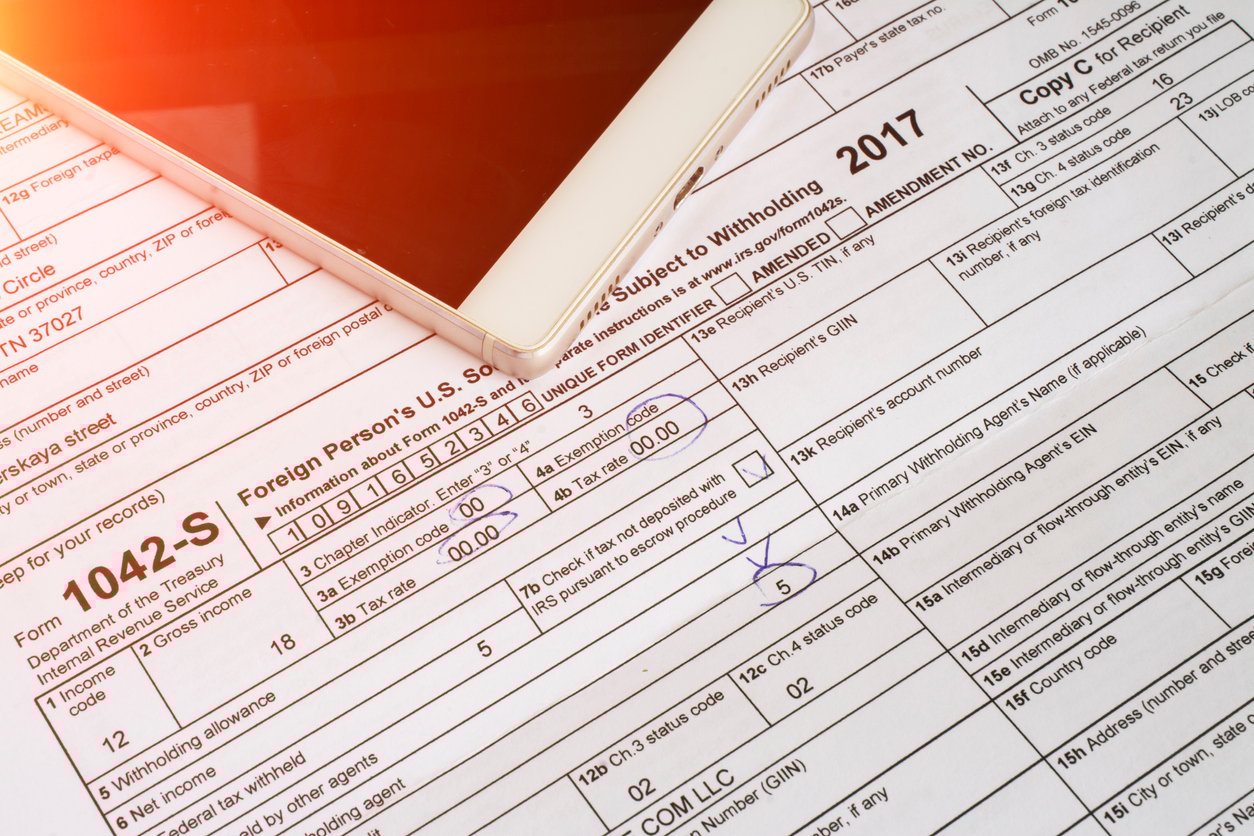 EAM
ntermediary
12g Foreign taxpa
nd street)
Circle
ate or province, country, ZIP or foreig
TN 37027
name
ss (number and street)
erskaya street
y or town, state or province, country, ZIP or foreign postal c
eep for your records)
17b Payer's state tax no.
Form
OMB No. 1545-0096
Copy C for Recipient
Attach to any Federal tax return you file
Form 1042-S
Department of the Treasury
Internal Revenue Service
Foreign Person's U.S. So
Subject to Withholding
2017
Information about Form 1042-S and i
parate instructions is at www.irs.gov/form1042s.
1 0 9 1 6 5 2 3 4 6
UNIQUE FORM IDENTIFIER
AMENDED
AMENDMENT NO.
1 Income code
12
2 Gross income
18
3 Chapter Indicator. Enter "3" or "4"
3
3a Exemption code 00
3b Tax rate 00.00
4a Exemption code
4b Tax rate 00.00
5 Withholding allowance
5
6 Net income
Federal tax withheld
7b Check if tax not deposited with
IRS pursuant to escrow procedure
eld by other agents
holding agent
5
12b Ch.3 status code
02
12c Ch.4 status code
02
COM LLC
Number (GIIN)
, if any
13e Recipient's U.S. TIN, if any
13f Ch. 3 status code
16
13g Ch. 4 status code
23
13h Recipient's GIIN
13i Recipient's foreign tax identification
number, if any
13j LOB co
13k Recipient's account number
13l Recipient's d
14a Primary Withholding Agent's Name (if applicable)
14b Primary Withholding Agent's EIN
15 Check if
15a Intermediary or flow-through entity's EIN, if any
15d Intermediary or flow-through entity's name
15e Intermediary or flow-through entity's GIIN
15f Country code
15g Foreig
15h Address (number and stree
15i City or town, state o